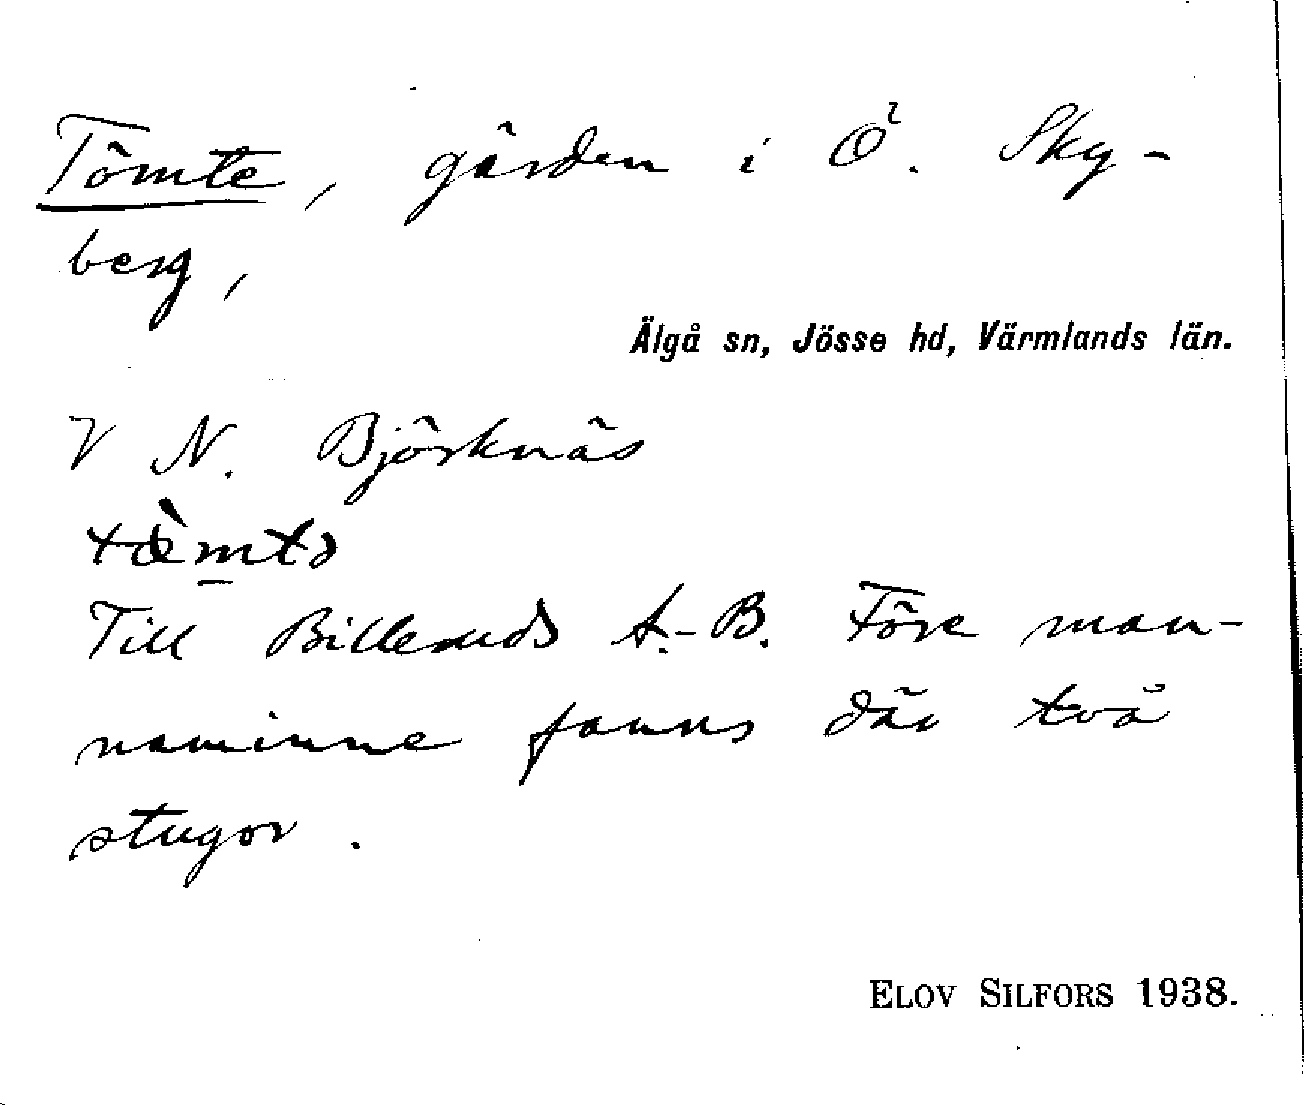 Tömte, gården i Ö. Sky-
berg,
Älgå sn, Jösse hd, Värmlands län.
V N. Björknäs
Till Billeruds A.-B. Före man-
naminne fanns där två
stugor.
ELOV SILFORS 1938.